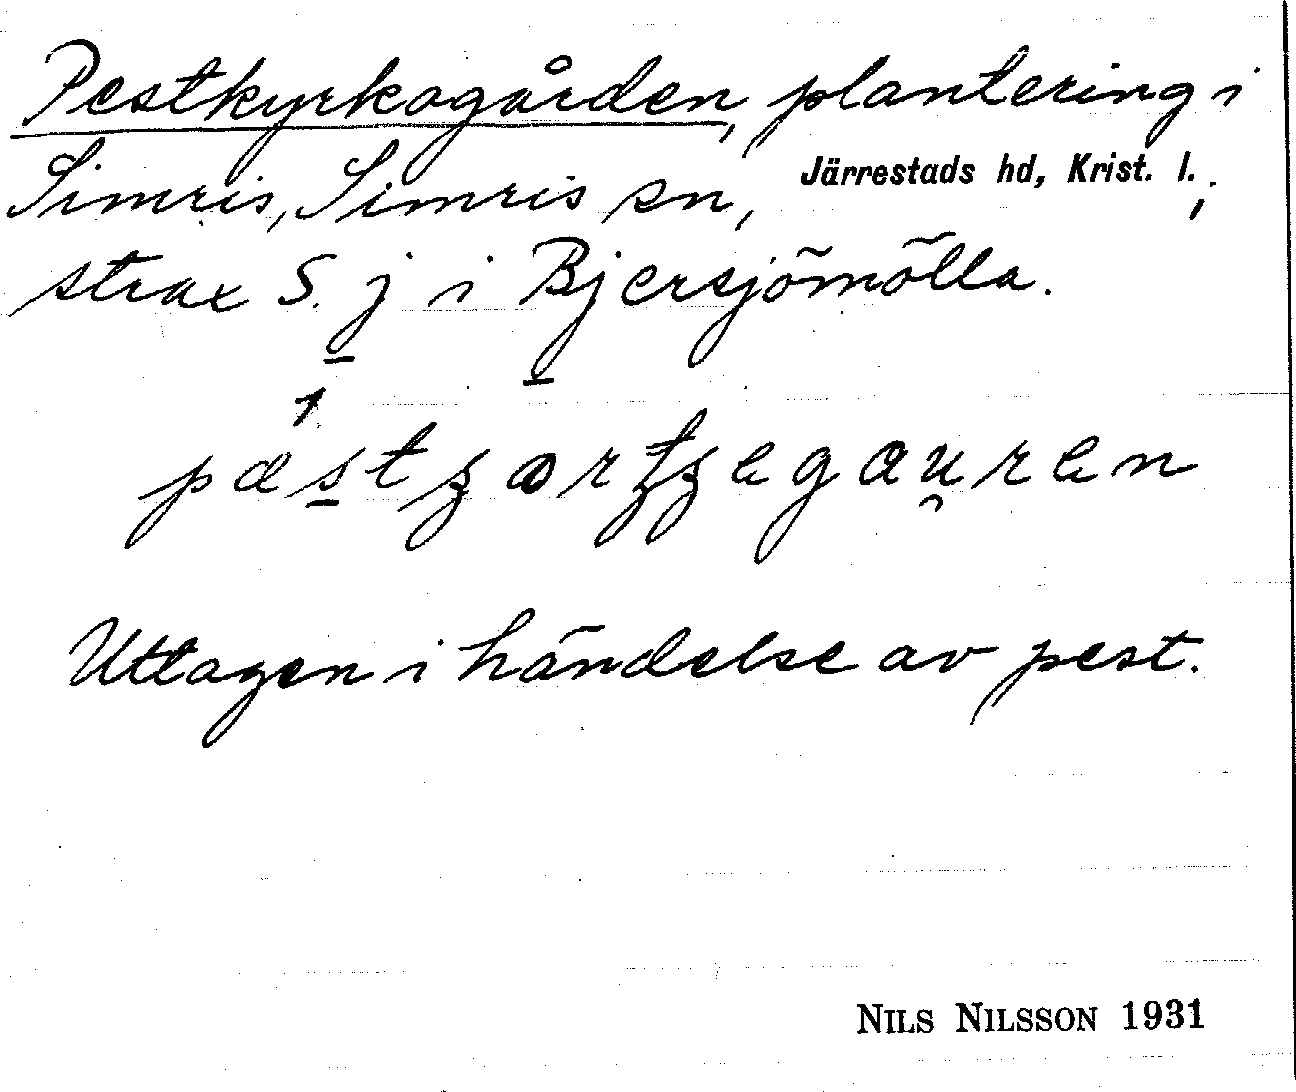 Pestkyrkogården, plantering i
Simris, Simris sn, Järrestads hd, Krist. l.,
strax S. j i Bjersjömölla.
Uttagen i händelse av pest.
NILS NILSSON 1931